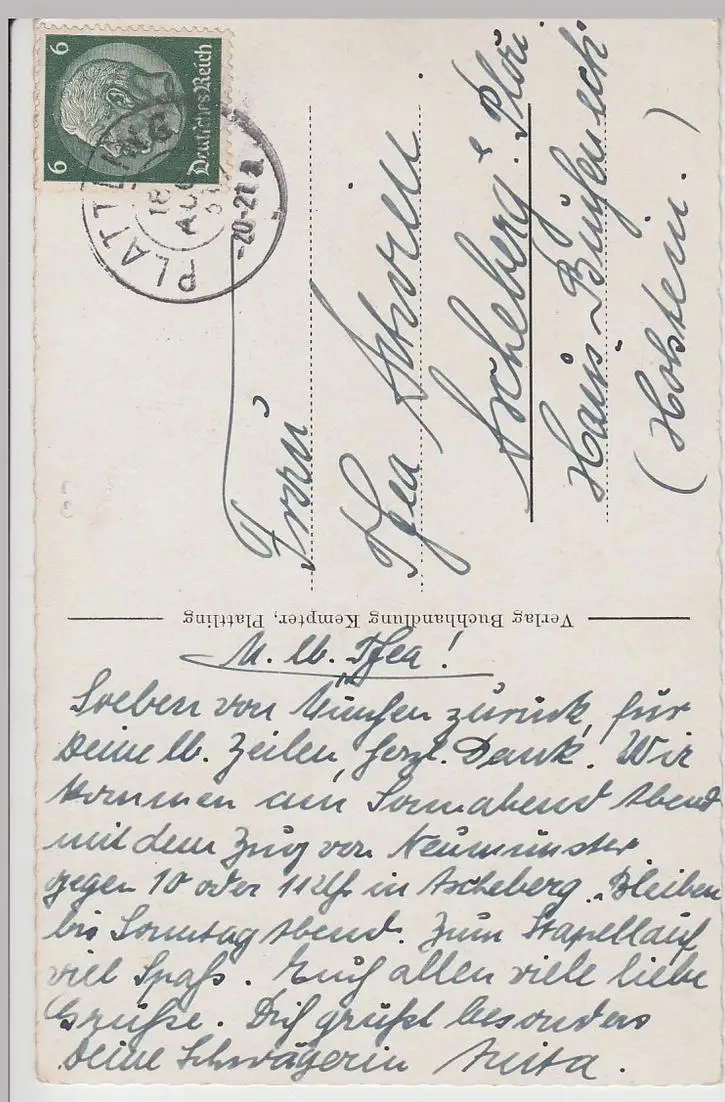 6
6
Deutsches Reich
PLATTLING
18
AUG
-20-21 a
Frau
Thea
Ascheberg b. Plön
Haus Bucheneck
(Holstein.)
Verlag Buchhandlung Kempter, Plattling
M. lb. Thea!
Soeben von München zurück, für
Deine lb. Zeilen herzl. Dank. Wir
kommen am Sonnabend Abend
mit dem Zug von Neumünster
gegen 10 oder 11 Uhr in Ascheberg. Bleiben
bis Sonntag Abend. Zum Stapellauf
viel Spaß. Euch allen viele liebe
Grüße. Dich grüßt besonders
Deine Schwägerin Anita.